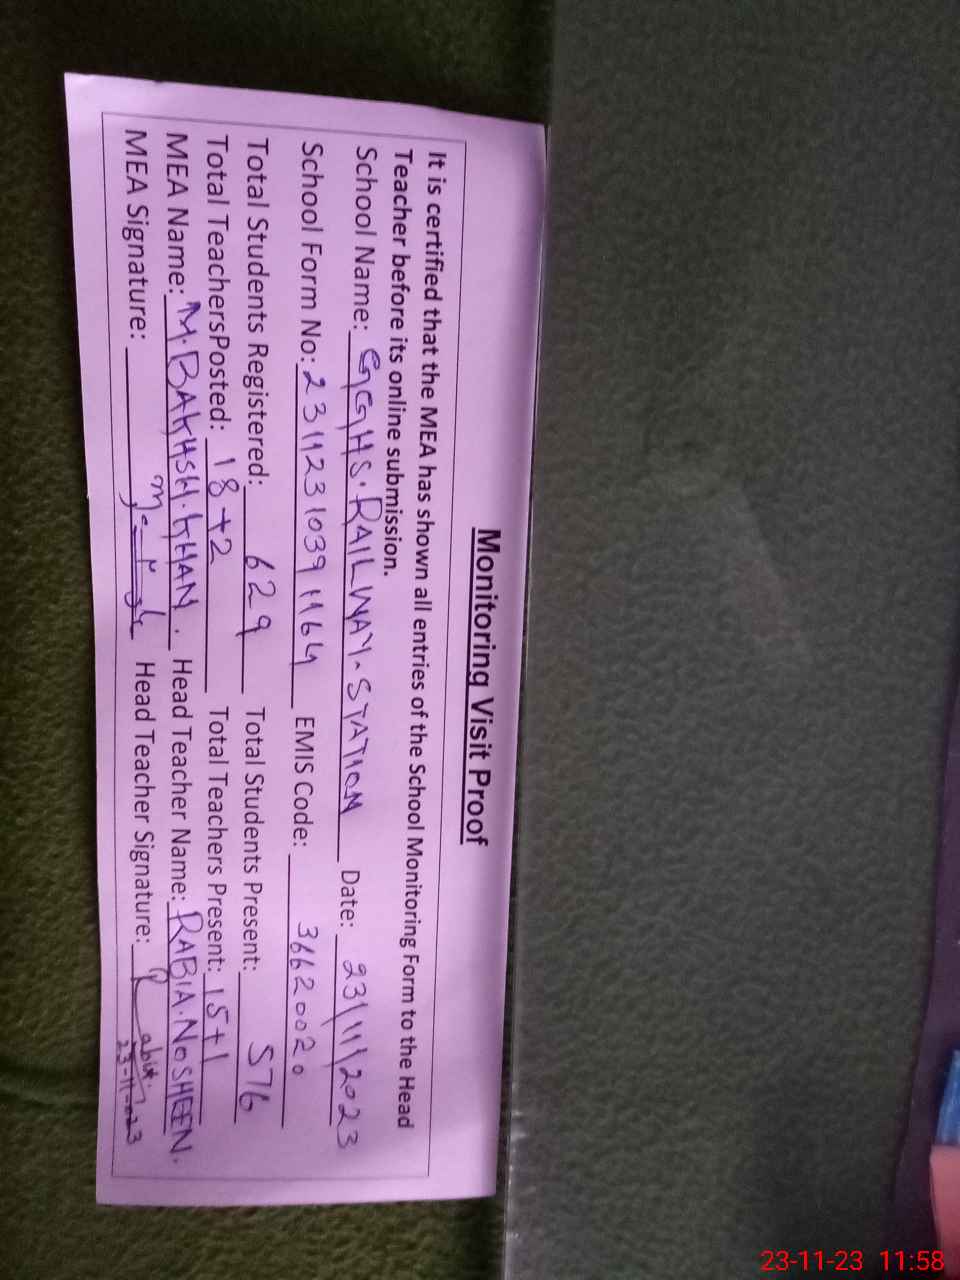 Monitoring Visit Proof
It is certified that the MEA has shown all entries of the School Monitoring Form to the Head
Teacher before its online submission.
School Name: GGHS. RAILWAY. STATION Date: 23/11/2023
School Form No: 231123103911164 EMIS Code: 36620020
Total Students Registered: 629 Total Students Present: 576
Total TeachersPosted: 18+2 Total Teachers Present: 15+1
MEA Name: M. BAKHSH. KHAN. Head Teacher Name: RABIA. NOSHEEN.
MEA Signature: Head Teacher Signature: Rabia
23-11-023
23-11-23 11:58